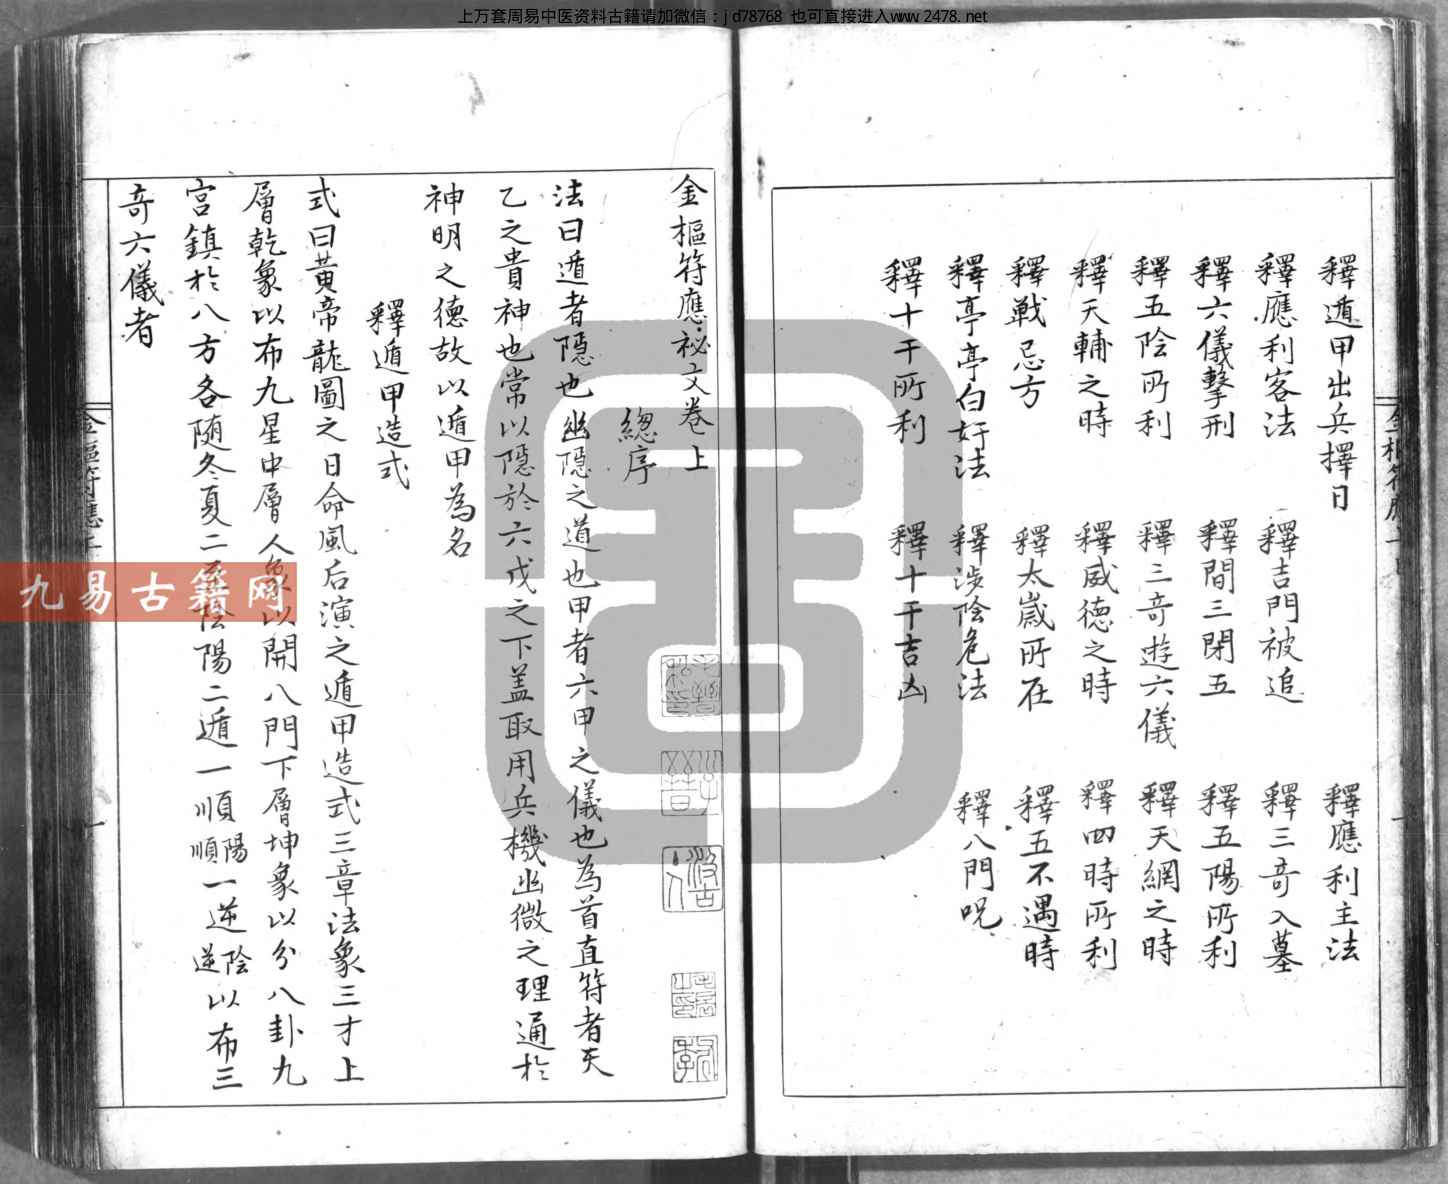 上万套周易中医资料古籍请加微信：jd78768 也可直接进入www.2478.net
釋遁甲出兵擇日 釋應利主法
釋應利客法 釋吉門被追 釋三奇入墓
釋六儀擊刑 釋間三閉五 釋五陽所利
釋五陰所利 釋三奇遊六儀 釋天網之時
釋天輔之時 釋威德之時 釋四時所利
釋戰忌方 釋太歲所在 釋五不遇時
釋亭亭白奸法 釋涉陰危法 釋八門呪
釋十干所利 釋十干吉凶
金樞符應祕文卷上
總序
法曰遁者隱也幽隱之道也甲者六甲之儀也為首直符者天
乙之貴神也常以隱於六戊之下盖取用兵機幽微之理通於
神明之德故以遁甲為名
釋遁甲造式
式曰黄帝龍圖之日命風后演之遁甲造式三章法象三才上
層乾象以布九星中層人象以開八門下層坤象以分八卦九
宮鎮於八方各随冬夏二至陰陽二遁一順陽順一逆陰逆以布三
奇六儀者
金樞符應
九易古籍网